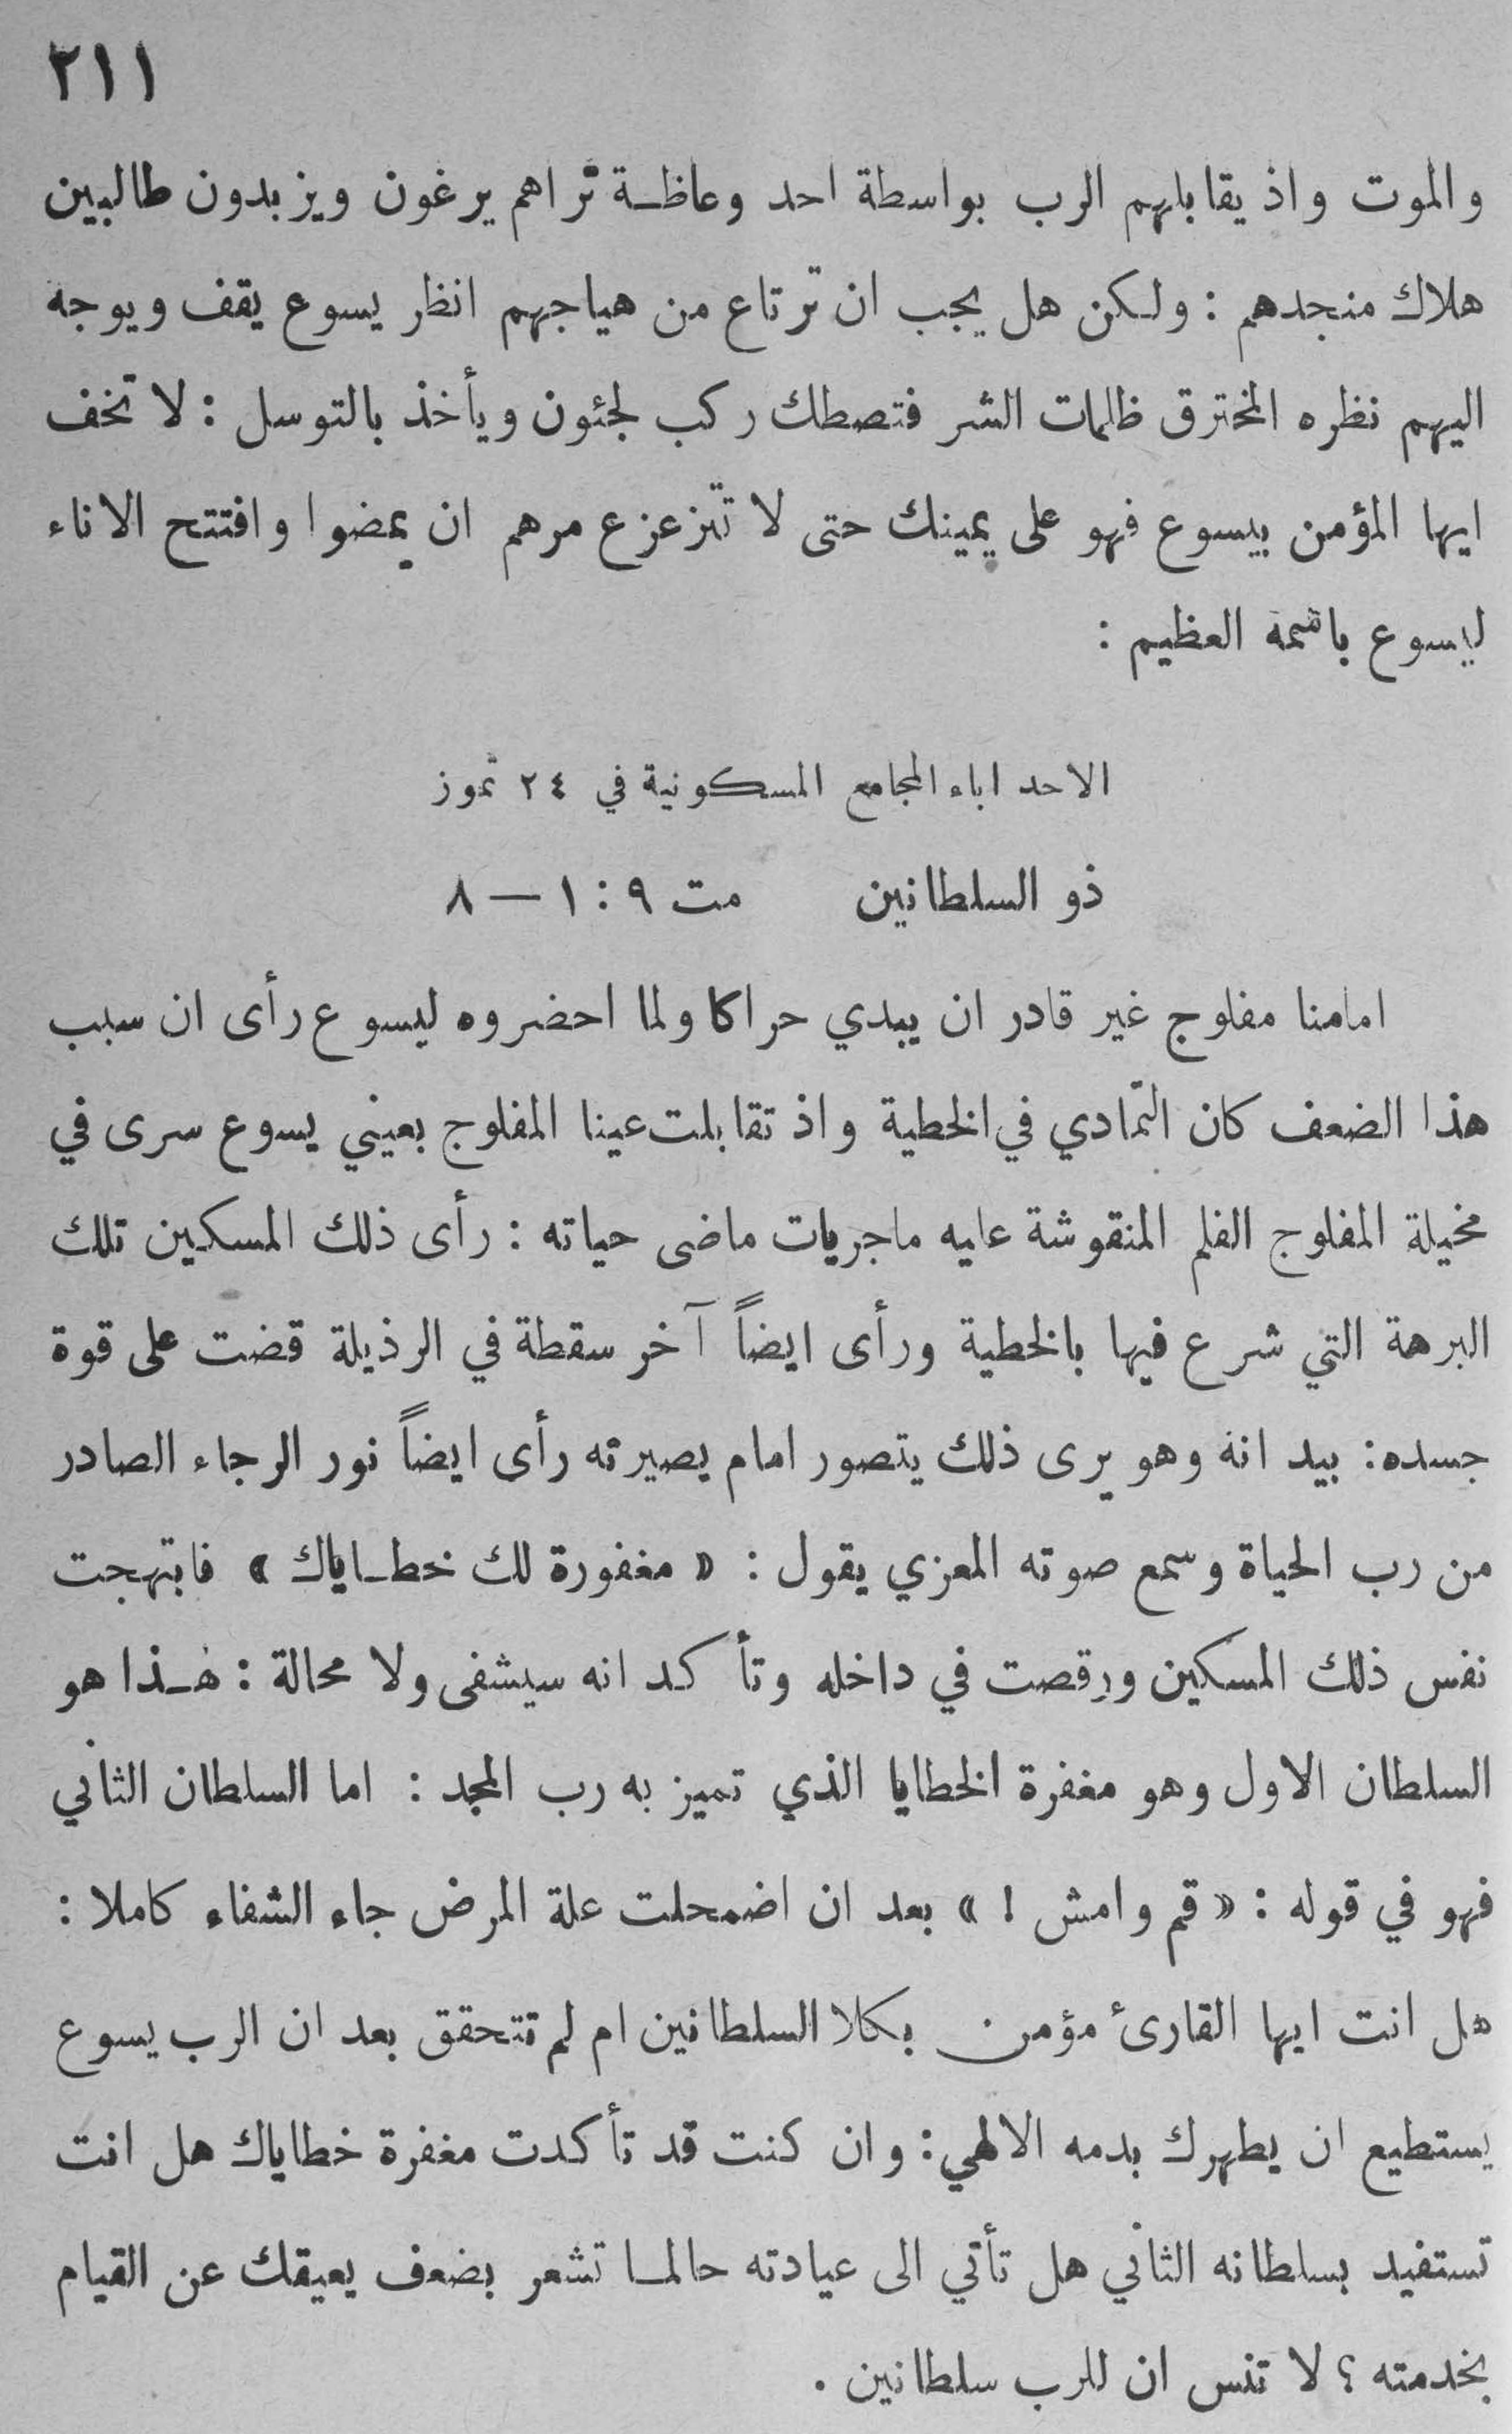 ٢١١
والموت واذ يقابلهم الرب بواسطة احد وعاظـة تراهم يرغون ويزبدون طالبين
هلاك منجدهم : ولكن هل يجب ان ترتاع من هياجهم انظر يسوع يقف ويوجه
اليهم نظره المخترق ظلمات الشر فتصطك ركب لجئون ويأخذ بالتوسل : لا تخف
ايها المؤمن بيسوع فهو على يمينك حتى لا تتزعزع مرهم ان يمضوا وافتتح الاناء
ليسوع باسمه العظيم :
الاحد اباء المجامع المسكونية في ٢٤ تموز
ذو السلطانين مت ٩ : ١ — ٨
امامنا مفلوج غير قادر ان يبدي حراكا ولما احضروه ليسوع رأى ان سبب
هذا الضعف كان التمادي في الخطية واذ تقابلت عينا المفلوج بعيني يسوع سرى في
مخيلة المفلوج الفلم المنقوشة عليه ماجريات ماضى حياته : رأى ذلك المسكين تلك
البرهة التي شرع فيها بالخطية ورأى ايضاً آخر سقطة في الرذيلة قضت على قوة
جسده : بيد انه وهو يرى ذلك يتصور امام بصيرته رأى ايضاً نور الرجاء الصادر
من رب الحياة وسمع صوته المعزي يقول : « مغفورة لك خطـاياك » فابتهجت
نفس ذلك المسكين ورقصت في داخله وتأكد انه سيشفى ولا محالة : هـذا هو
السلطان الاول وهو مغفرة الخطايا الذي تميز به رب المجد : اما السلطان الثاني
فهو في قوله : « قم وامش ! » بعد ان اضمحلت علة المرض جاء الشفاء كاملا :
هل انت ايها القارئ مؤمن بكلا السلطانين ام لم تتحقق بعد ان الرب يسوع
يستطيع ان يطهرك بدمه الالهي : وان كنت قد تأكدت مغفرة خطاياك هل انت
تستفيد بسلطانه الثاني هل تأتي الى عيادته حالمـا تشعر بضعف يعيقك عن القيام
بخدمته ؟ لا تنس ان للرب سلطانين .